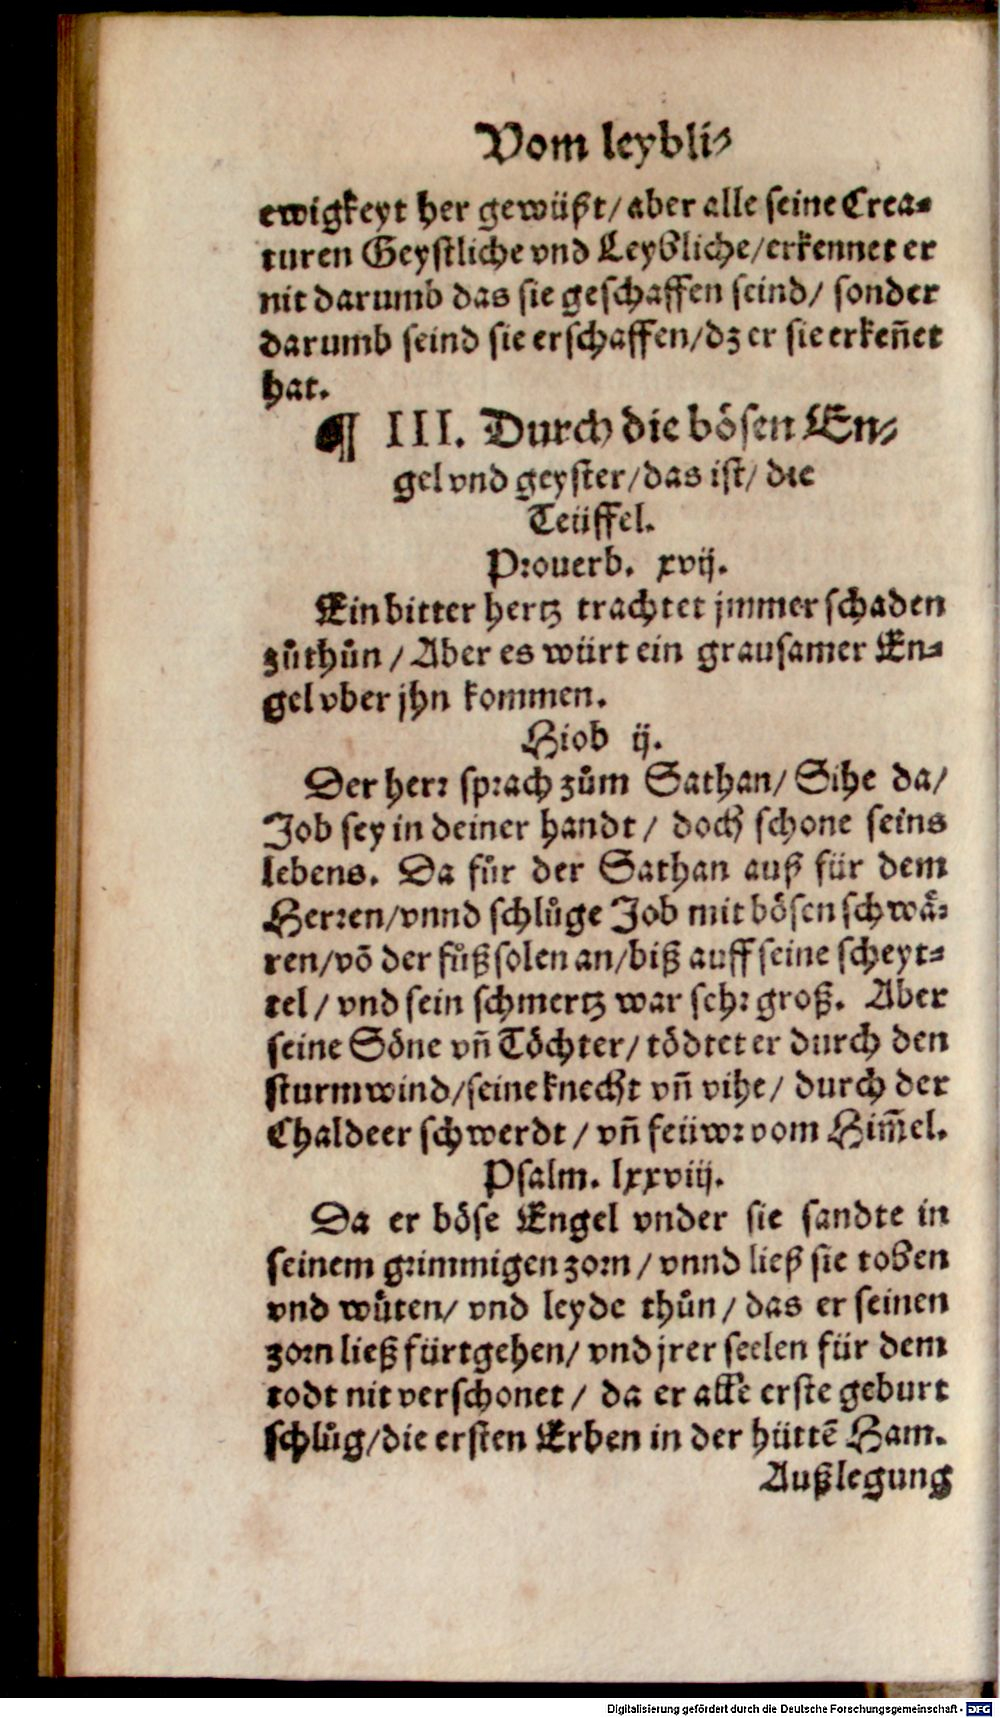 Vom leybli-
ewigkeyt her gewüßt/ aber alle seine Crea-
turen Geystliche vnd Leybliche/ erkennet er
nit darumb das sie geschaffen seind/ sonder
darumb seind sie erschaffen/ dz er sie erkeñet
hat.
¶ III. Durch die bösen En-
gel vnd geyster/ das ist/ die
Teüffel.
Prouerb. xvij.
Ein bitter hertz trachtet jmmer schaden
zůthůn / Aber es würt ein grausamer En-
gel vber jhn kommen.
Hiob ij.
Der herr sprach zům Sathan/ Sihe da/
Job sey in deiner handt / doch schone seins
lebens. Da für der Sathan auß für dem
Herren/ vnnd schlůge Job mit bösen schwä-
ren/ võ der fůß solen an/ biß auff seine scheyt-
tel / vnd sein schmertz war sehr groß. Aber
seine Söne vñ Töchter/ tödtet er durch den
sturmwind/ seine knecht vñ vihe/ durch der
Chaldeer schwerdt / vñ feüwr vom Him̃el.
Psalm. lxxviij.
Da er böse Engel vnder sie sandte in
seinem grimmigen zorn / vnnd ließ sie toben
vnd wůten/ vnd leyde thůn / das er seinen
zorn ließ fürtgehen/ vnd jrer seelen für dem
todt nit verschonet / da er alle erste geburt
schlůg/ die ersten Erben in der hüttẽ Ham.
Außlegung
Digitalisierung gefördert durch die Deutsche Forschungsgemeinschaft - DFG